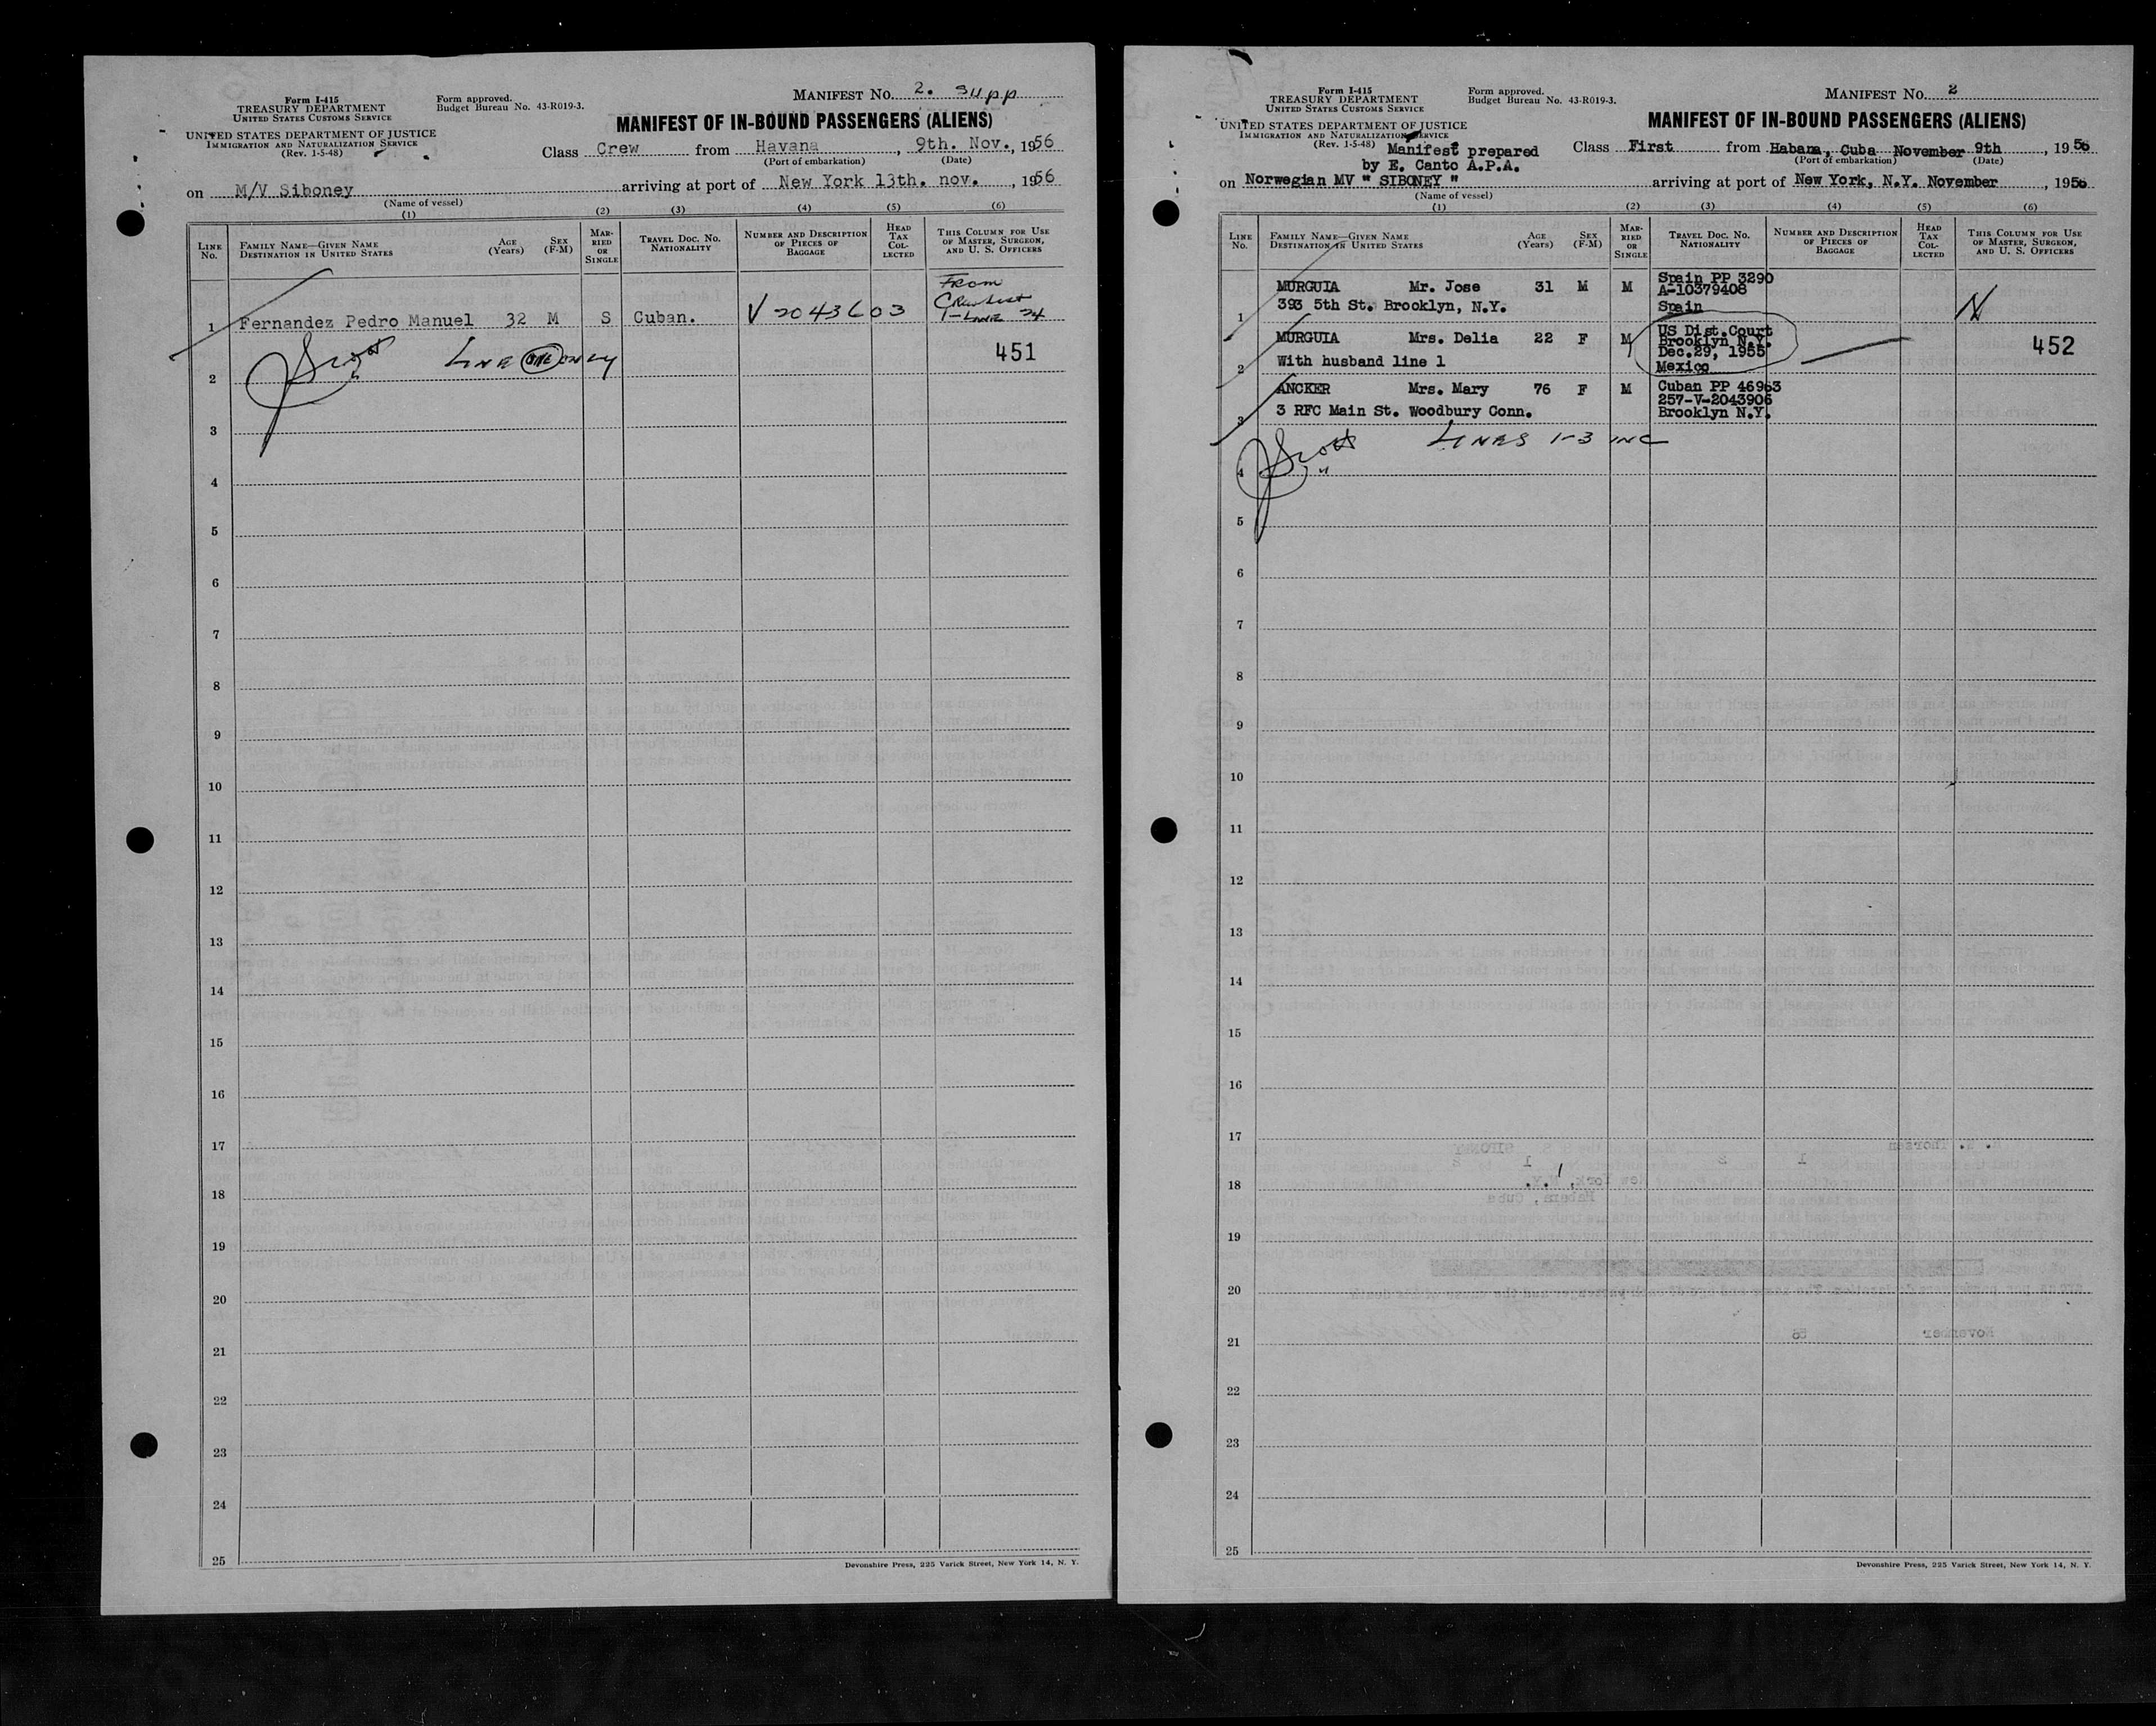 Form I-415
TREASURY DEPARTMENT
UNITED STATES CUSTOMS SERVICE
UNITED STATES DEPARTMENT OF JUSTICE
IMMIGRATION AND NATURALIZATION SERVICE
(Rev. 1-5-48)
Form approved.
Budget Bureau No. 43-R019-3.
MANIFEST No. 2. Supp
MANIFEST OF IN-BOUND PASSENGERS (ALIENS)
Class Crew from Havana, 9th. Nov., 1956
(Port of embarkation) (Date)
on M/V Siboney arriving at port of New York 13th. nov., 1956
(Name of vessel)
(1) (2) (3) (4) (5) (6)
LINE No. FAMILY NAME—GIVEN NAME DESTINATION IN UNITED STATES AGE (Years) SEX (F-M) MARRIED OR SINGLE TRAVEL DOC. No. NATIONALITY NUMBER AND DESCRIPTION OF PIECES OF BAGGAGE HEAD TAX COLLECTED THIS COLUMN FOR USE OF MASTER, SURGEON, AND U. S. OFFICERS
From
Crew List
1 Fernandez Pedro Manuel 32 M S Cuban. V 2043603 1-Line 24
Scott LINE ONE ONLY 451
2
3
4
5
6
7
8
9
10
11
12
13
14
15
16
17
18
19
20
21
22
23
24
25
Devonshire Press, 225 Varick Street, New York 14, N. Y.
Form I-415
TREASURY DEPARTMENT
UNITED STATES CUSTOMS SERVICE
UNITED STATES DEPARTMENT OF JUSTICE
IMMIGRATION AND NATURALIZATION SERVICE
(Rev. 1-5-48)
Form approved.
Budget Bureau No. 43-R019-3.
MANIFEST No. 2
MANIFEST OF IN-BOUND PASSENGERS (ALIENS)
Manifest prepared
by E. Canto A.P.A.
Class First from Habana, Cuba November 9th, 1956
(Port of embarkation) (Date)
on Norwegian MV " SIBONEY " arriving at port of New York, N.Y. November, 1956
(Name of vessel)
(1) (2) (3) (4) (5) (6)
LINE No. FAMILY NAME—GIVEN NAME DESTINATION IN UNITED STATES AGE (Years) SEX (F-M) MARRIED OR SINGLE TRAVEL DOC. No. NATIONALITY NUMBER AND DESCRIPTION OF PIECES OF BAGGAGE HEAD TAX COLLECTED THIS COLUMN FOR USE OF MASTER, SURGEON, AND U. S. OFFICERS
Spain PP 3290
MURGUIA Mr. Jose 31 M M A-10379408
1 393 5th St. Brooklyn, N.Y. Spain N
US Dist.Court
MURGUIA Mrs. Delia 22 F M Brooklyn N.Y. 452
Dec.29, 1955
2 With husband line 1 Mexico
ANCKER Mrs. Mary 76 F M Cuban PP 46963
257-V-2043906
3 3 RFC Main St. Woodbury Conn. Brooklyn N.Y.
Scott LINES 1-3 INC
4
5
6
7
8
9
10
11
12
13
14
15
16
17
18
19
20
21
22
23
24
25
Devonshire Press, 225 Varick Street, New York 14, N. Y.